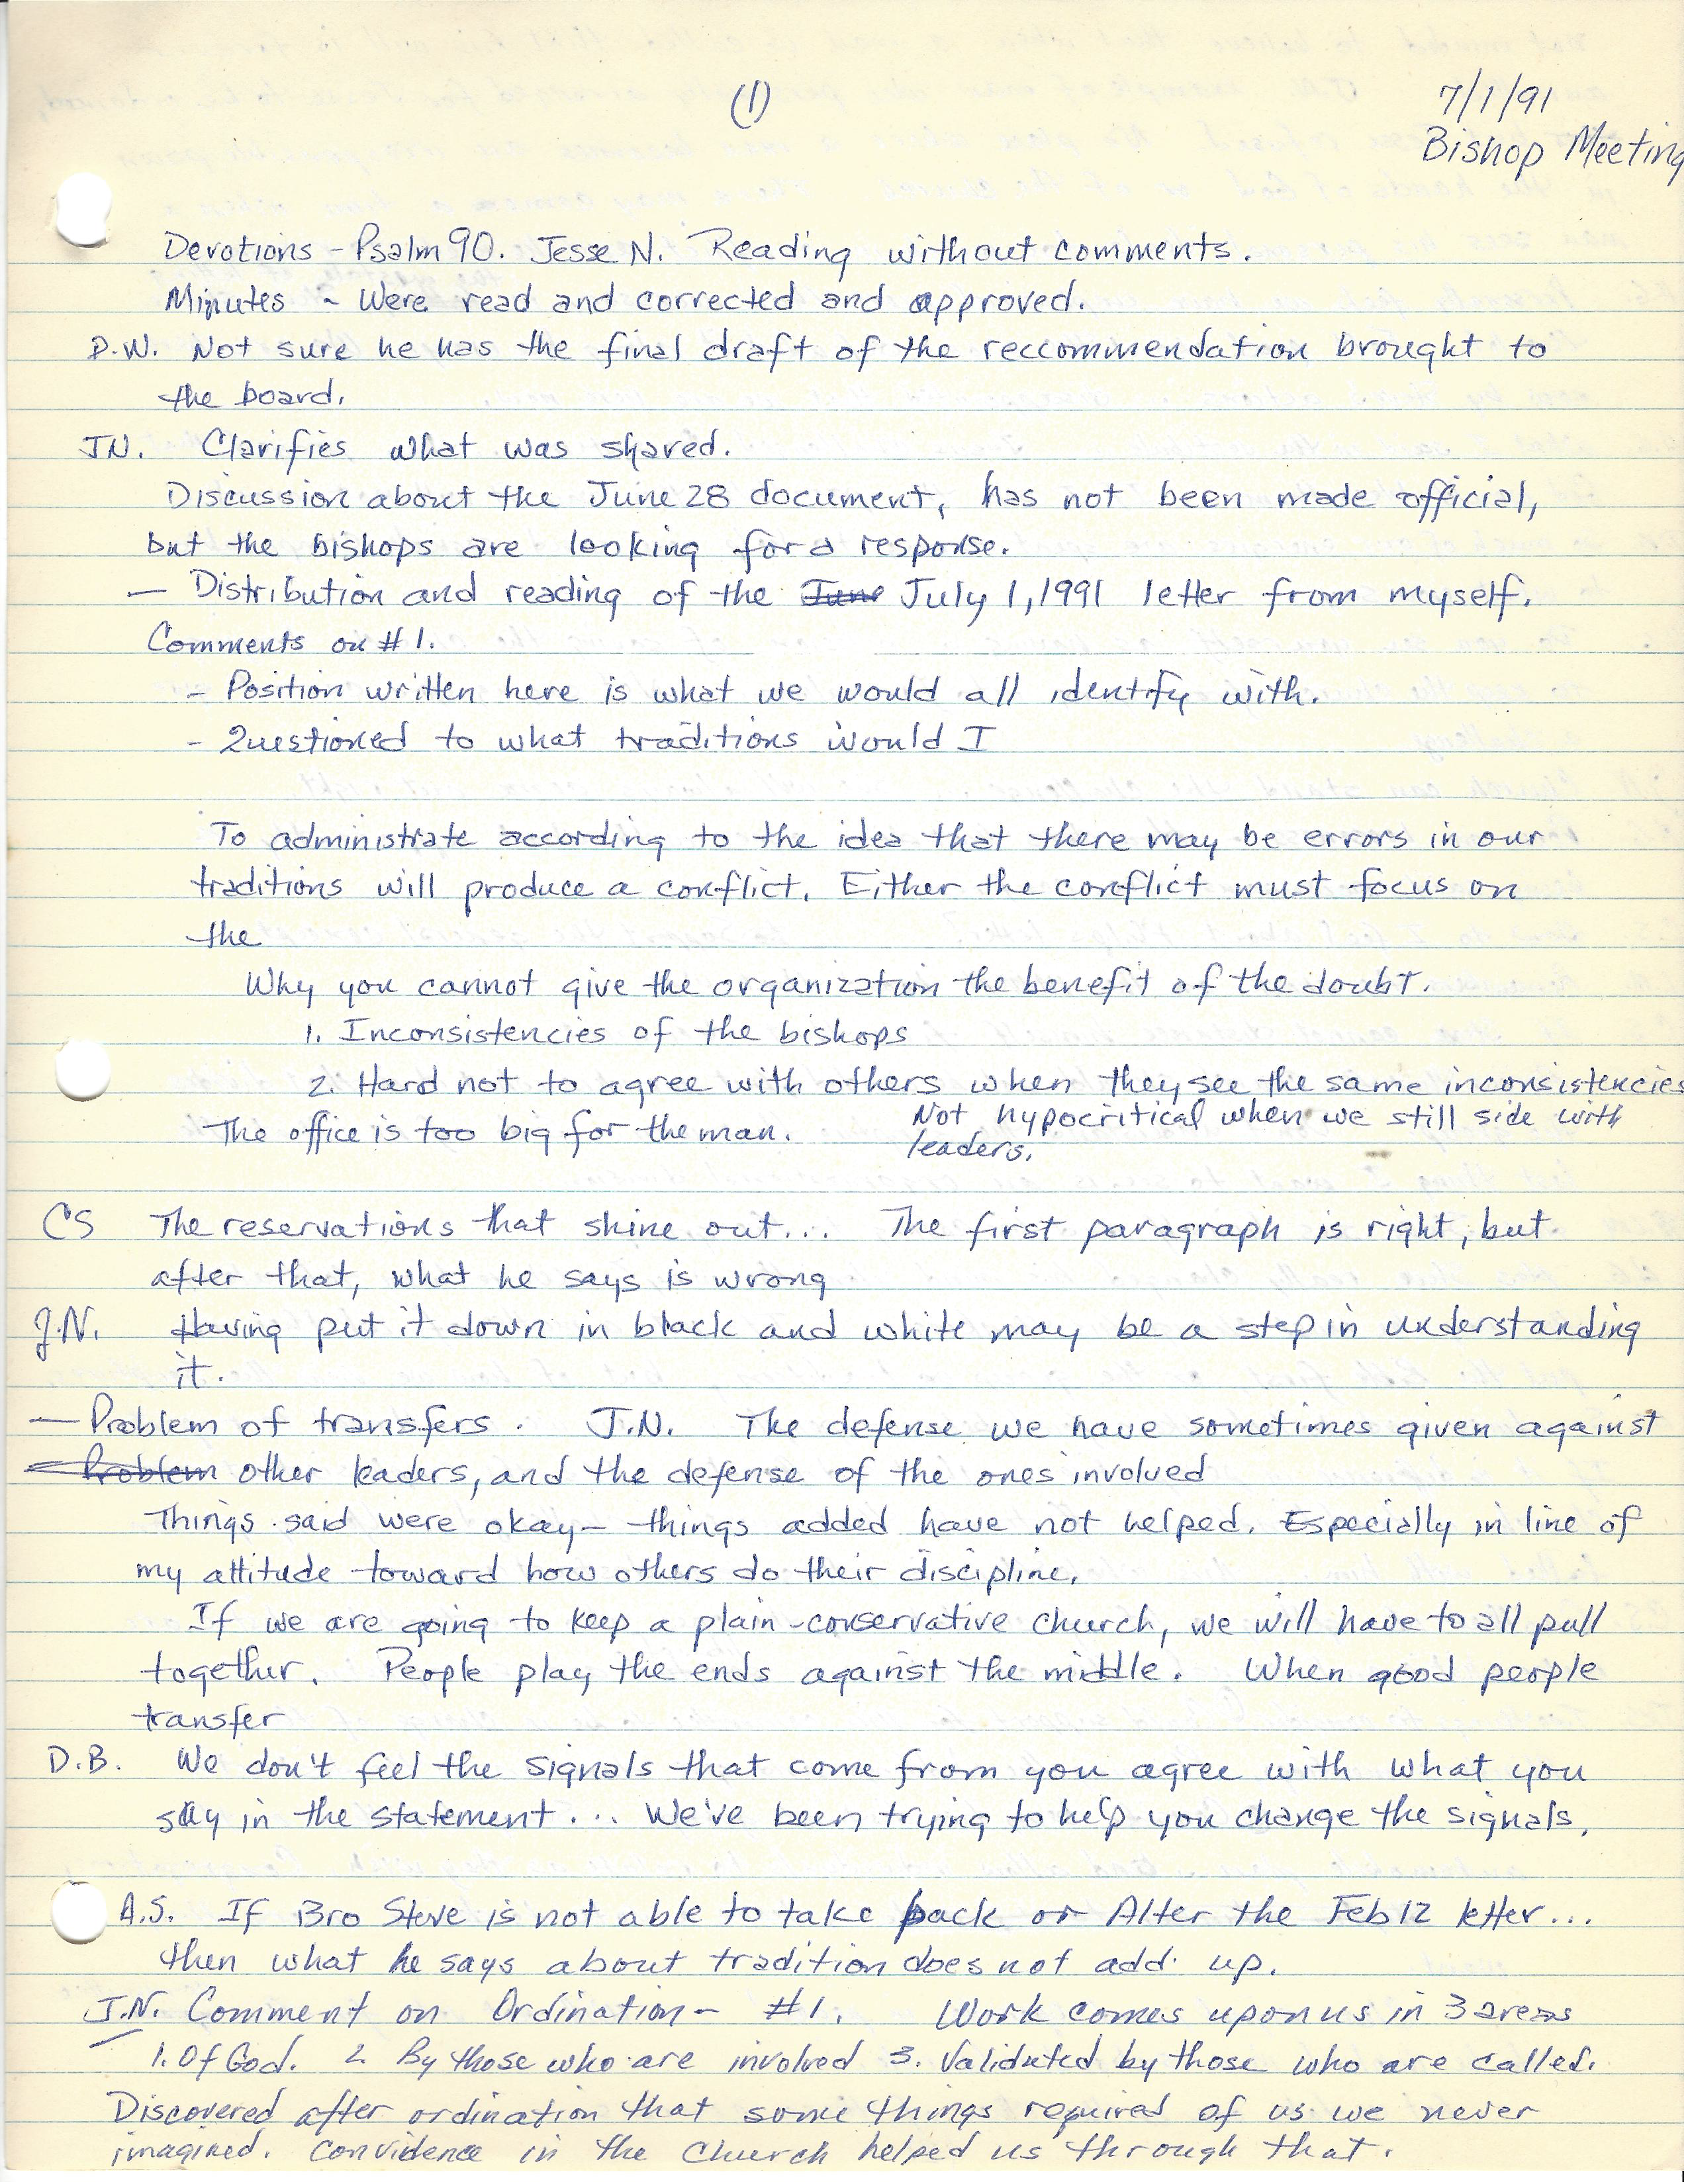 (1)
7/1/91
Bishop Meeting
Devotions - Psalm 90. Jesse N. Reading without comments.
Minutes - Were read and corrected and approved.
D.W. Not sure he has the final draft of the reccommendation brought to
the board.
JN. Clarifies what was shared.
Discussion about the June 28 document, has not been made official,
but the bishops are looking for a response.
— Distribution and reading of the June July 1, 1991 letter from myself.
Comments on #1.
- Position written here is what we would all identify with.
- Questioned to what traditions would I
To administrate according to the idea that there may be errors in our
traditions will produce a conflict. Either the conflict must focus on
the
Why you cannot give the organization the benefit of the doubt.
1. Inconsistencies of the bishops
2. Hard not to agree with others when they see the same inconsistencies
Not hypocritical when we still side with
leaders.
The office is too big for the man.
CS The reservations that shine out... The first paragraph is right, but
after that, what he says is wrong
J.N. Having put it down in black and white may be a step in understanding
it.
— Problem of transfers. J.N. The defense we have sometimes given against
— Problem other leaders, and the defense of the ones involved
Things said were okay - things added have not helped. Especially in line of
my attitude toward how others do their discipline.
If we are going to keep a plain-conservative church, we will have to all pull
together. People play the ends against the middle. When good people
transfer
D.B. We don't feel the signals that come from you agree with what you
say in the statement... We've been trying to help you change the signals.
A.S. If Bro Steve is not able to take back or Alter the Feb 12 letter...
then what he says about tradition does not add up.
J.N. Comment on Ordination - #1. Work comes upon us in 3 areas
1. Of God. 2. By those who are involved 3. Validated by those who are called.
Discovered after ordination that some things required of us we never
imagined. Convidence in the church helped us through that.